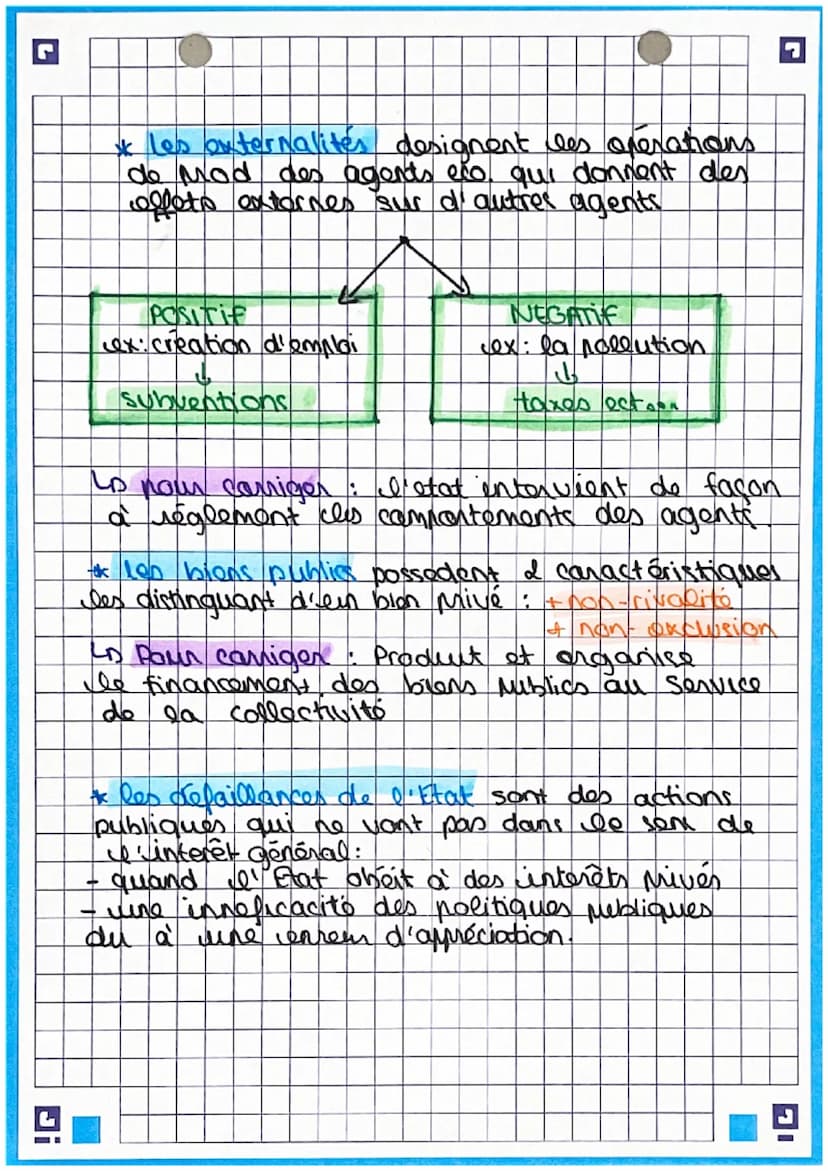 * les externalités designent les opérations
de prod des agents eco. qui donnent des
effets externes sur d'autres agents
POSITIF
ex: création d'emploi
↓
subventions
NEGATIF
ex: la pollution
↓
taxes ect...
↳ pour corriger : l'etat intervient de façon
à réglement les comportements des agents.
* les biens publics possedent 2 caractéristiques
les distinguant d'un bien privé : + non-rivalité
+ non-exclusion
↳ Pour corriger : Produit et organise
le financement des biens publics au service
de la collectivité
* les défaillances de l'Etat sont des actions
publiques qui ne vont pas dans le sens de
l'interêt général:
- quand l'Etat obéit à des interêts privés
- une inneficacité des politiques publiques
du à une erreur d'appréciation.